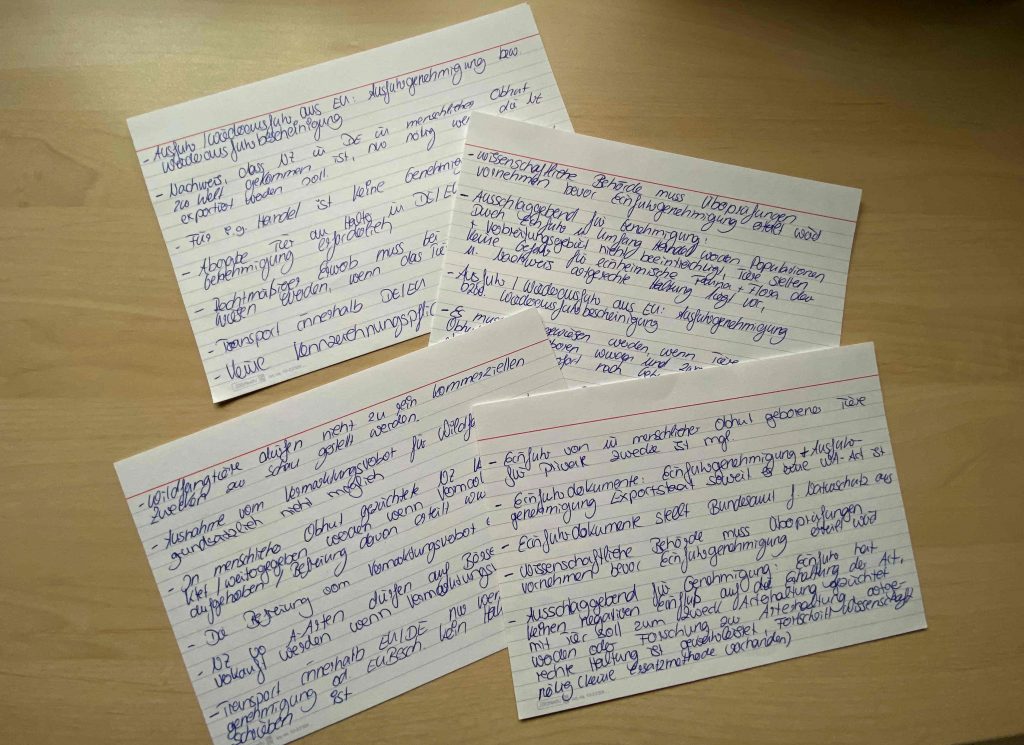 - Ausfuhr / Wiederausfuhr aus EU: Ausfuhrgenehmigung bzw.
Wiederausfuhrbescheinigung
- Nachweis, dass NZ in DE in menschlicher Obhut
zur Welt gekommen ist, nur nötig wenn da
exportiert werden soll.
- Für Handel ist keine
- Abgabe Tier an Halter in DE/EU
Genehmigung erforderlich
- Rechtmäßiger Erwerb muss bei
wiesen werden, wenn das
- Transport innerhalb DE/EU
- Keine Kennzeichnungspflic
- wissenschaftliche Behörde muss Überprüfungen
vornehmen bevor Einfuhrgenehmigung erteilt wird
- Ausschlaggebend für Genehmigung:
Durch Einfuhr u. Umfang Handel werden Populationen
+ Verbreitungsgebiet nicht beeinträchtigt, Tiere stellen
keine Gefahr für einheimische Fauna + Flora dar
u. Nachweis artgerechte Haltung liegt vor,
- Ausfuhr / Wiederausfuhr aus EU: Ausfuhrgenehmigung
bzw. Wiederausfuhrbescheinigung
- Es muss gewiesen werden, wenn Tiere
Obhu boren, wurden und
nach
- Wildfangtiere dürfen nicht zu rein kommerziellen
Zwecken zur Schau gestellt werden.
- Ausnahme vom Vermarktungsverbot für Wildf
grundsätzlich nicht möglich
- In menschlicher Obhut gezüchtete NZ
/ weitergegeben werden wenn
aufgehoben / Befreiung davon erteilt
- Die Befreiung vom Vermarktungsverbot
- NZ A-Arten dürfen auf Börse
verkauft werden wenn
- Transport innerhalb EU/DE nur
genehmigung od. EU Besch. kein
schrieben ist
- Einfuhr von in menschlicher Obhut geborenes Tiere
für private Zwecke ist mgl.
- Einfuhrdokumente: Einfuhrgenehmigung + Ausfuhr-
genehmigung Exportstaat soweit es eine WA-Art ist
- Einfuhrdokumente stellt Bundesamt f. Naturschutz aus
- Wissenschaftliche Behörde muss Überprüfungen
vornehmen bevor Einfuhrgenehmigung erteilt wird
- Ausschlaggebend für Genehmigung: Einfuhr hat
keinen negativen Einfluß auf die Erhaltung der Art,
mit Tier soll zum Zweck Arterhaltung gezüchtet
werden oder Forschung zur Arterhaltung, artge-
rechte Haltung ist gewährleistet, Fortschritt Wissenschaft
nötig (keine Ersatzmethode vorhanden)